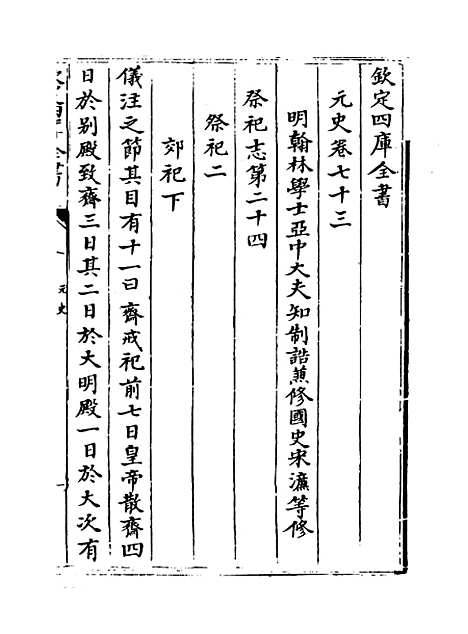 欽定四庫全書
元史卷七十三
明翰林學士亞中大夫知制誥兼修國史宋濂等修
祭祀志第二十四
祭祀二
郊祀下
儀注之節其目有十一曰齋戒祀前七日皇帝散齋四
日於别殿致齋三日其二日於大明殿一日於大次有
元史
一